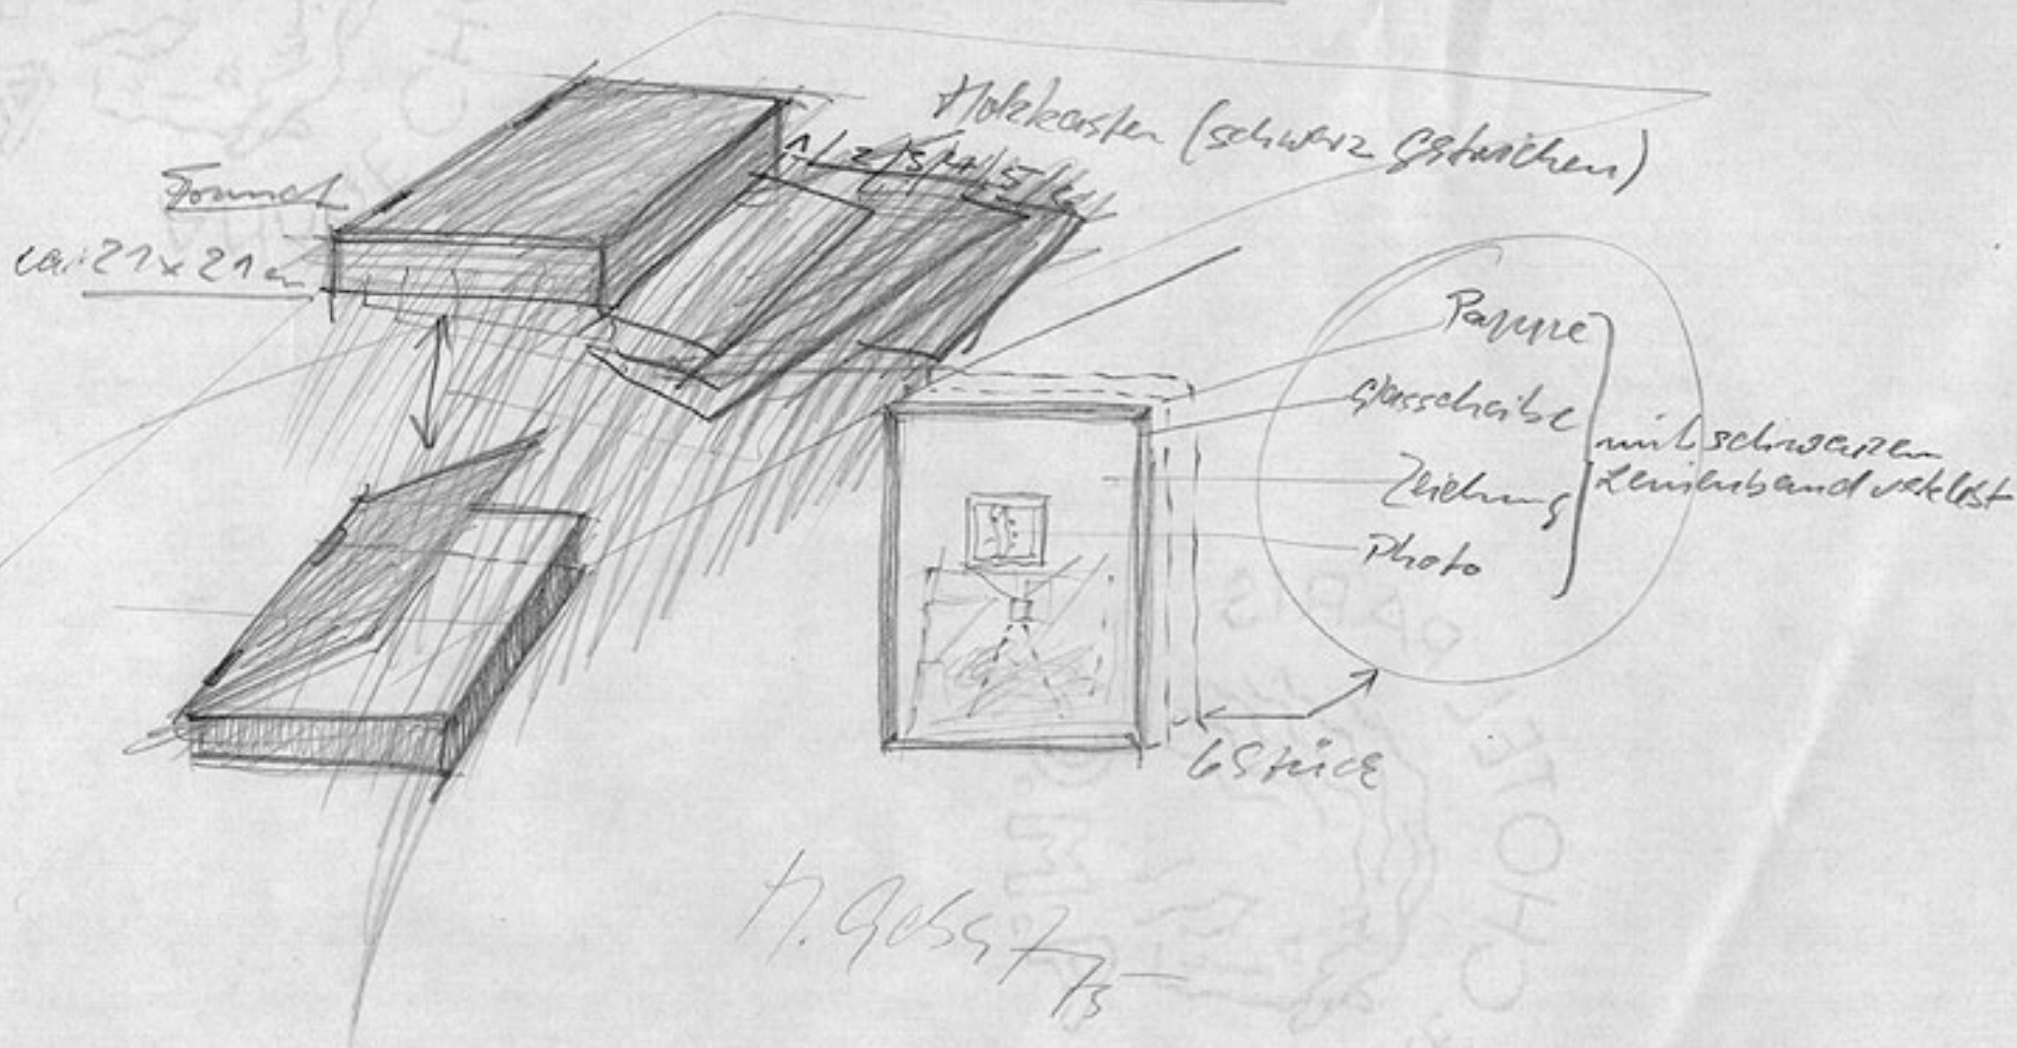 Holzkasten (schwarz gestrichen)
1/2/3/4/5/6
Format
ca: 21 x 21 cm
Pappe
Glasscheibe
Zeichnung
Photo
mit schwarzem
Leinenband verklebt
6 Stück
PARIS
HOTEL